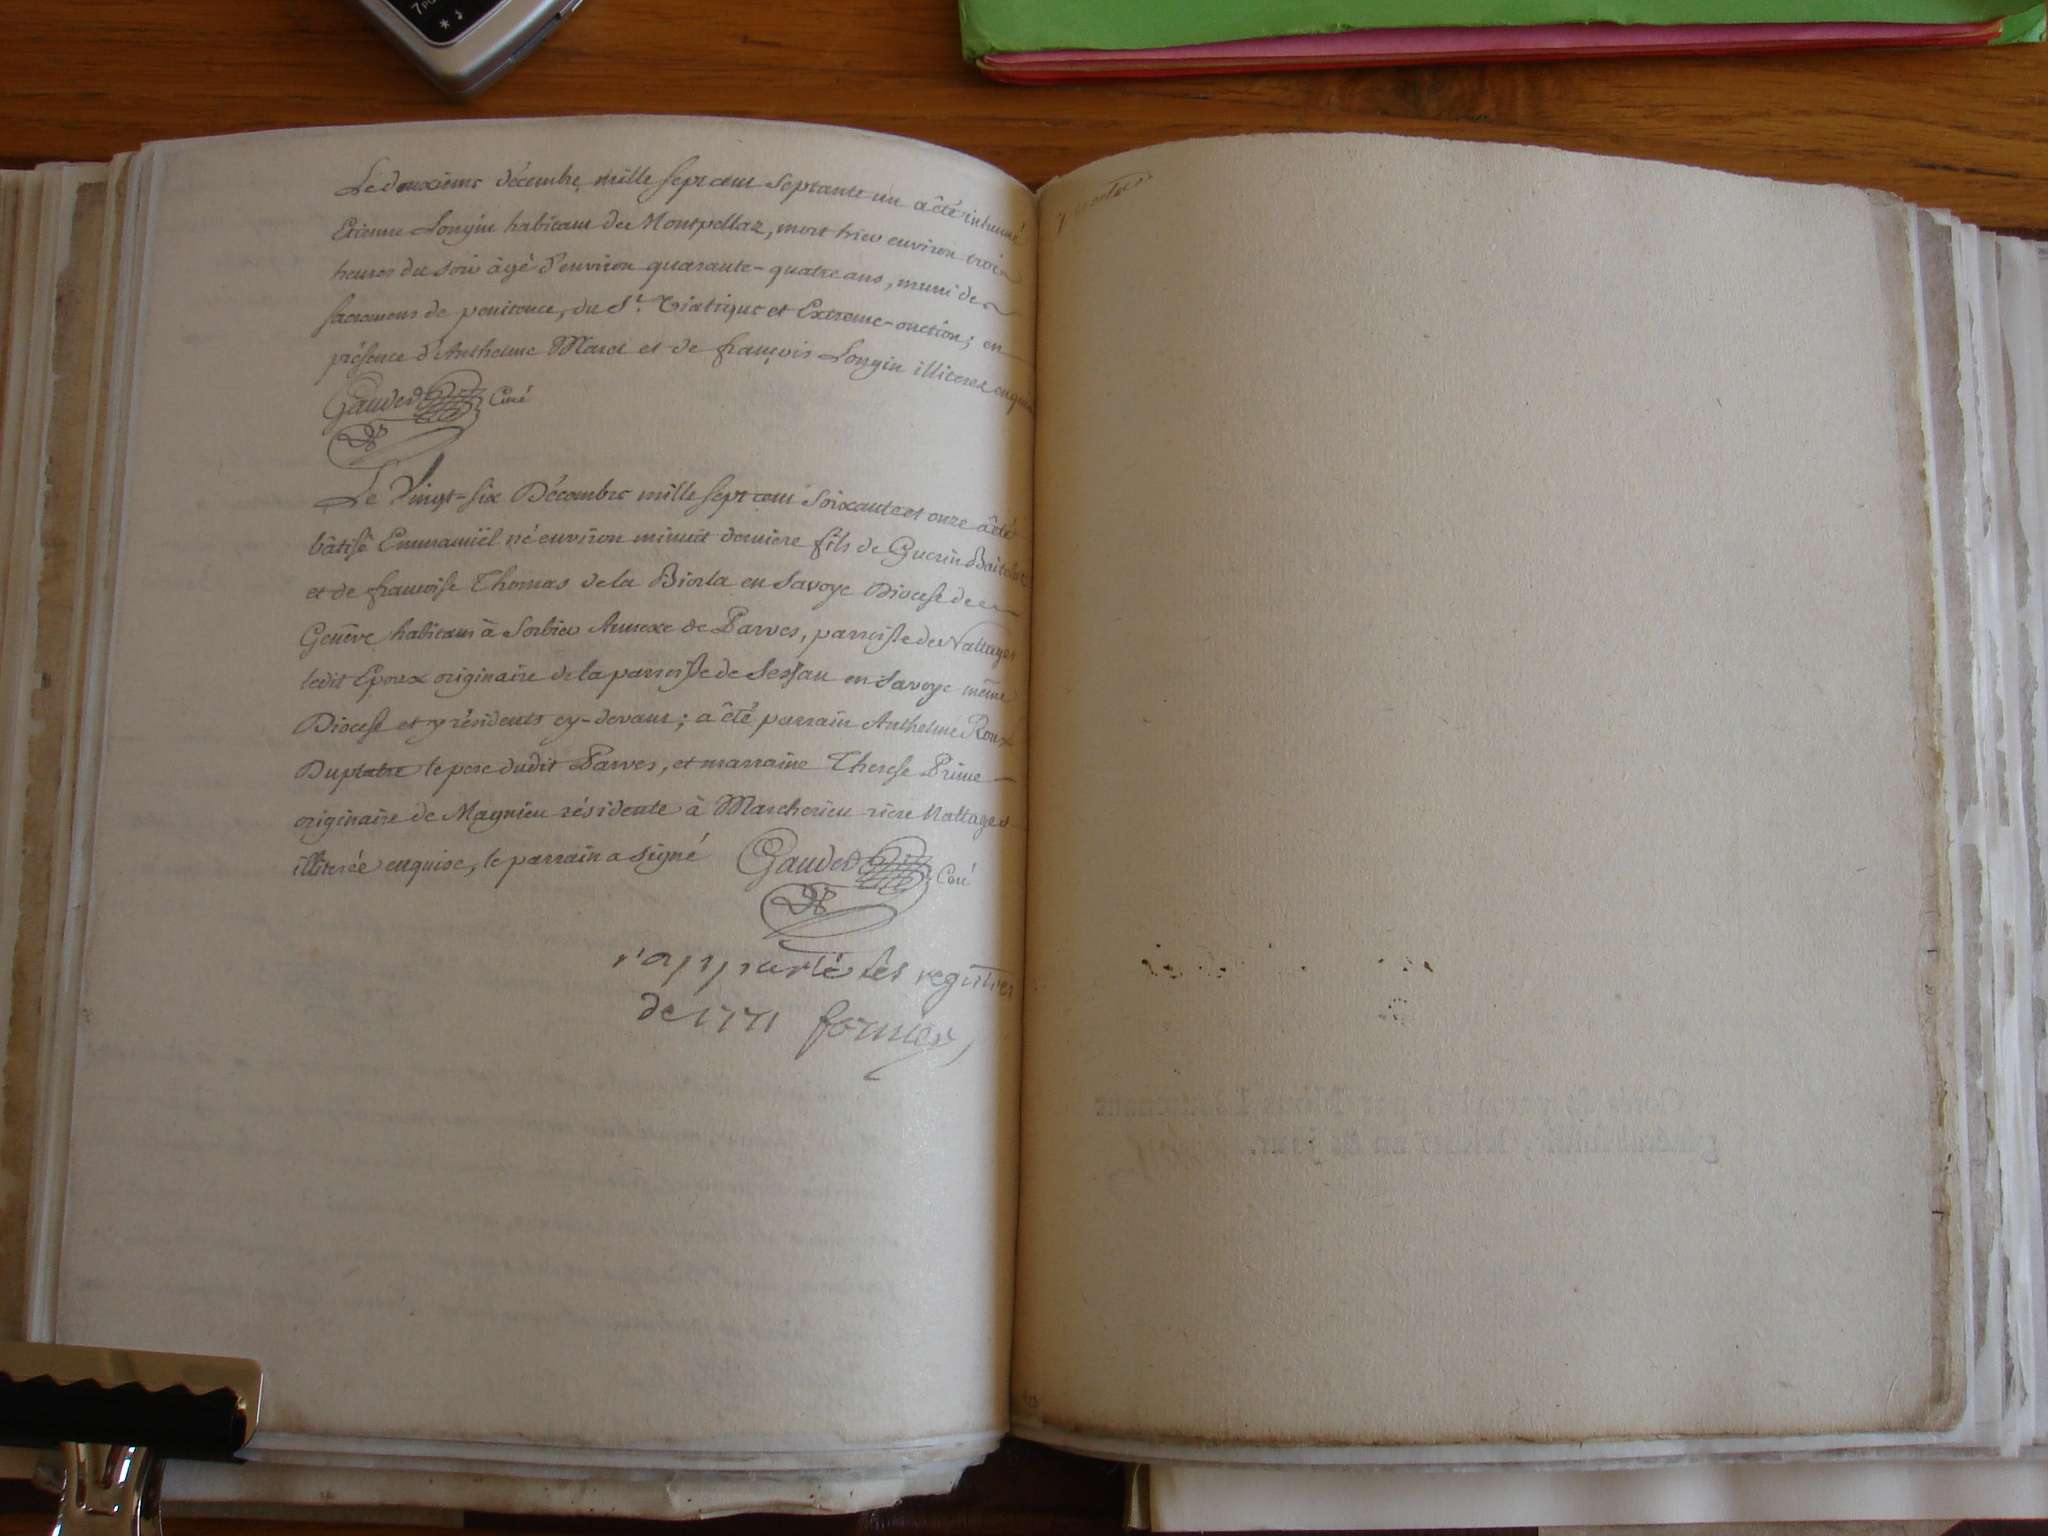 Le deuxieme décembre mille sept cent septante un a été inhumé
Etienne Longin habitant de Montpellaz, mort hier environ trois
heures du soir âgé d'environ quarante-quatre ans, muni des
sacremens de penitence, du St. Viatique et Extreme-onction; en
présence d'Anthelme Maret et de françois Longin illiterez enquis
Gaudet Curé
Le Vingt-six Décembre mille sept cent soixante et onze a été
bâtisé Emmanuël né environ minuit derniere fils de Guerin
et de françoise Thomas de la Biolla en Savoye Diocese de
Genève habitans à Sorbier Annexe de Parves, parroisse de Nattages
ledit Epoux originaire de la parroisse de Sessan en Savoye même
Diocese et y résidents cy-devant; a été parrain Anthelme Roux
Duplatre le pere dudit Parves, et marraine Therese Prime
originaire de Magnieu résidente à Marcherieu riere Nattages
illiterée enquise, le parrain a signé Gaudet Curé
r'apporté les registres
de 1771 fornier